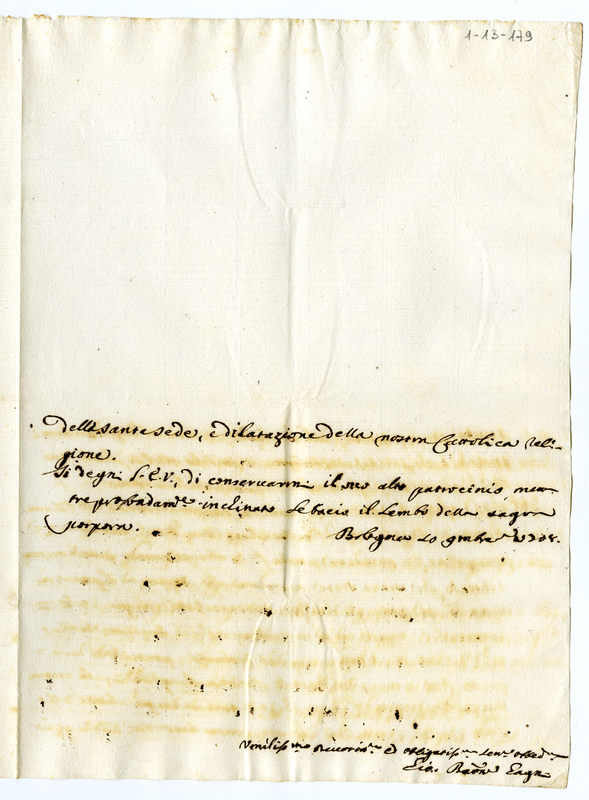 1-13-179
della santa sede, e dilatazione della nostra Cattolica reli-
gione.
Si degni S. E. V., di conservarmi il suo alto patrocinio, men-
tre profondam.e inclinato le bacio il lembo della sagra
porpora.
Bologna 10 9mbre
Umiliss.mo ed obligatiss.mo
Gio.